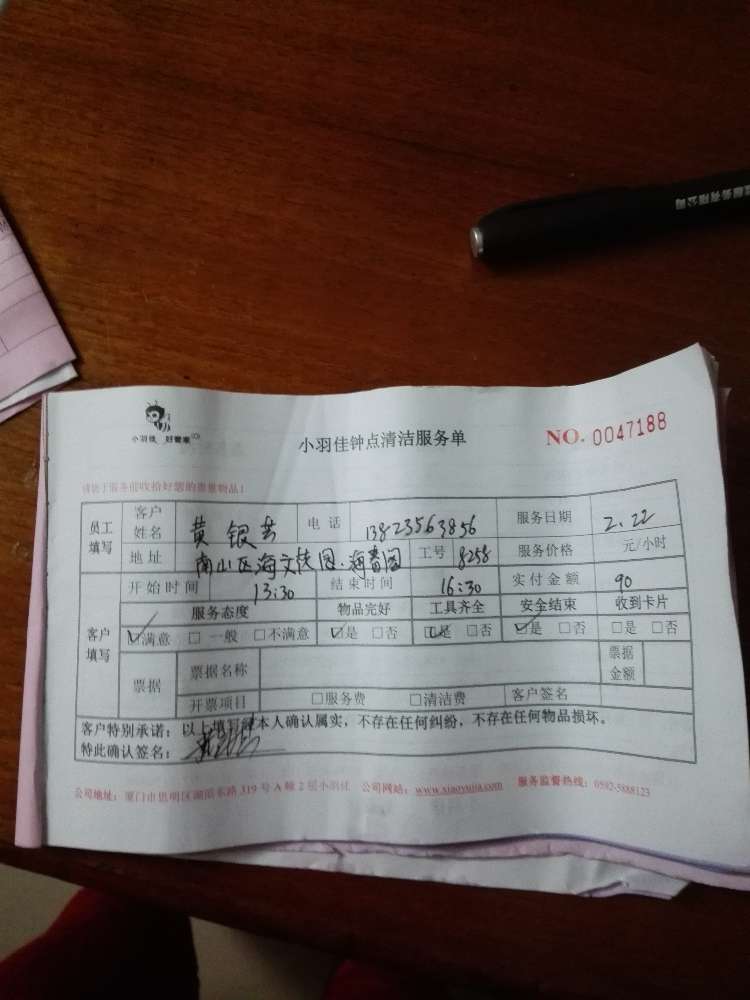 小羽佳 好管家
小羽佳钟点清洁服务单
NO. 0047188
请于服务前收拾好您的贵重物品！
员工填写 客户姓名 黄银芸 电话 13823563856 服务日期 2.22
地址 南山区海文花园·海 阁 工号 8258 服务价格 元/小时
客户填写 开始时间 13:30 结束时间 16:30 实付金额 90
服务态度 物品完好 工具齐全 安全结束 收到卡片
☑满意 □一般 □不满意 ☑是 □否 ☑是 □否 ☑是 □否 □是 □否
票据 票据名称 票据金额
开票项目 □服务费 □清洁费 客户签名
客户特别承诺：以上填写经本人确认属实，不存在任何纠纷，不存在任何物品损坏。
特此确认签名：
公司地址：厦门市思明区湖滨东路 319 号 A 幢 2 层小羽佳 公司网站：www.xiaoyujia.com 服务监督热线：0592-5888123